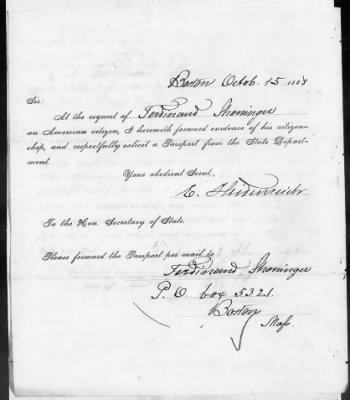 Boston Octob. 15 1888
Sir:
At the request of Ferdinand Shoninger
an American citizen, I herewith forward evidence of his citizen-
ship, and respectfully solicit a Passport from the State Depart-
ment.
Your obedient Servt,
E. Heidenreich
To the Hon Secretary of State.
Please forward the Passport per mail to
Ferdinand Shoninger
P. O. box 5321.
Boston
Mass.